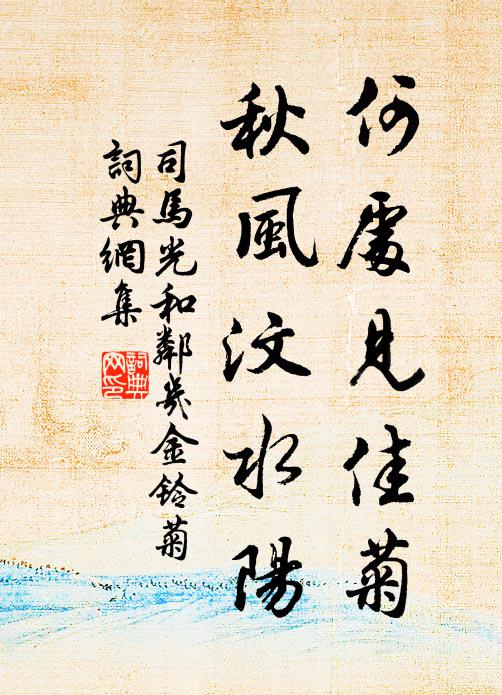 何處見佳菊
秋風汶水陽
司馬光和鄰幾金鈴菊
詞典網集
詞典网印